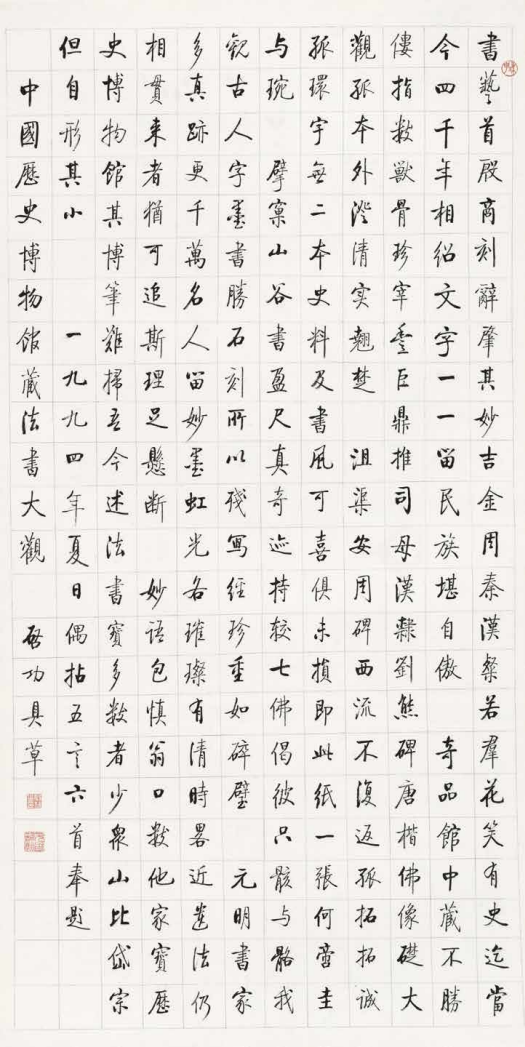 書藝首殷商刻辭肇其妙吉金周秦漢粲若羣花笑有史迄當
今四千年相紹文字一一留民族堪自傲 奇品館中藏不勝
僂指数獸骨珍宰豐巨鼎推司母漢隸劉熊碑唐楷佛像礎大
觀孤本外澄清実翹楚 沮渠安周碑西流不復返孤拓拓誠
孤環宇無二本史料及書風可喜俱未損即此紙一張何啻圭
与琬 擘窠山谷書盈尺真奇迹持較七佛偈彼只骸与骼我
観古人字墨書勝石刻所以殘寫經珍重如碎璧 元明書家
多真跡更千萬名人留妙墨虹光各璀璨有清時畧近遺法仍
相貫来者猶可追斯理足懸断 妙語包慎翁口数他家寶歷
史博物館其博筆難掃吾今述法書寶多数者少衆山比岱宗
但自形其小 一九九四年夏日偶拈五言六首奉題
中國歷史博物館藏法書大觀 啓功具草